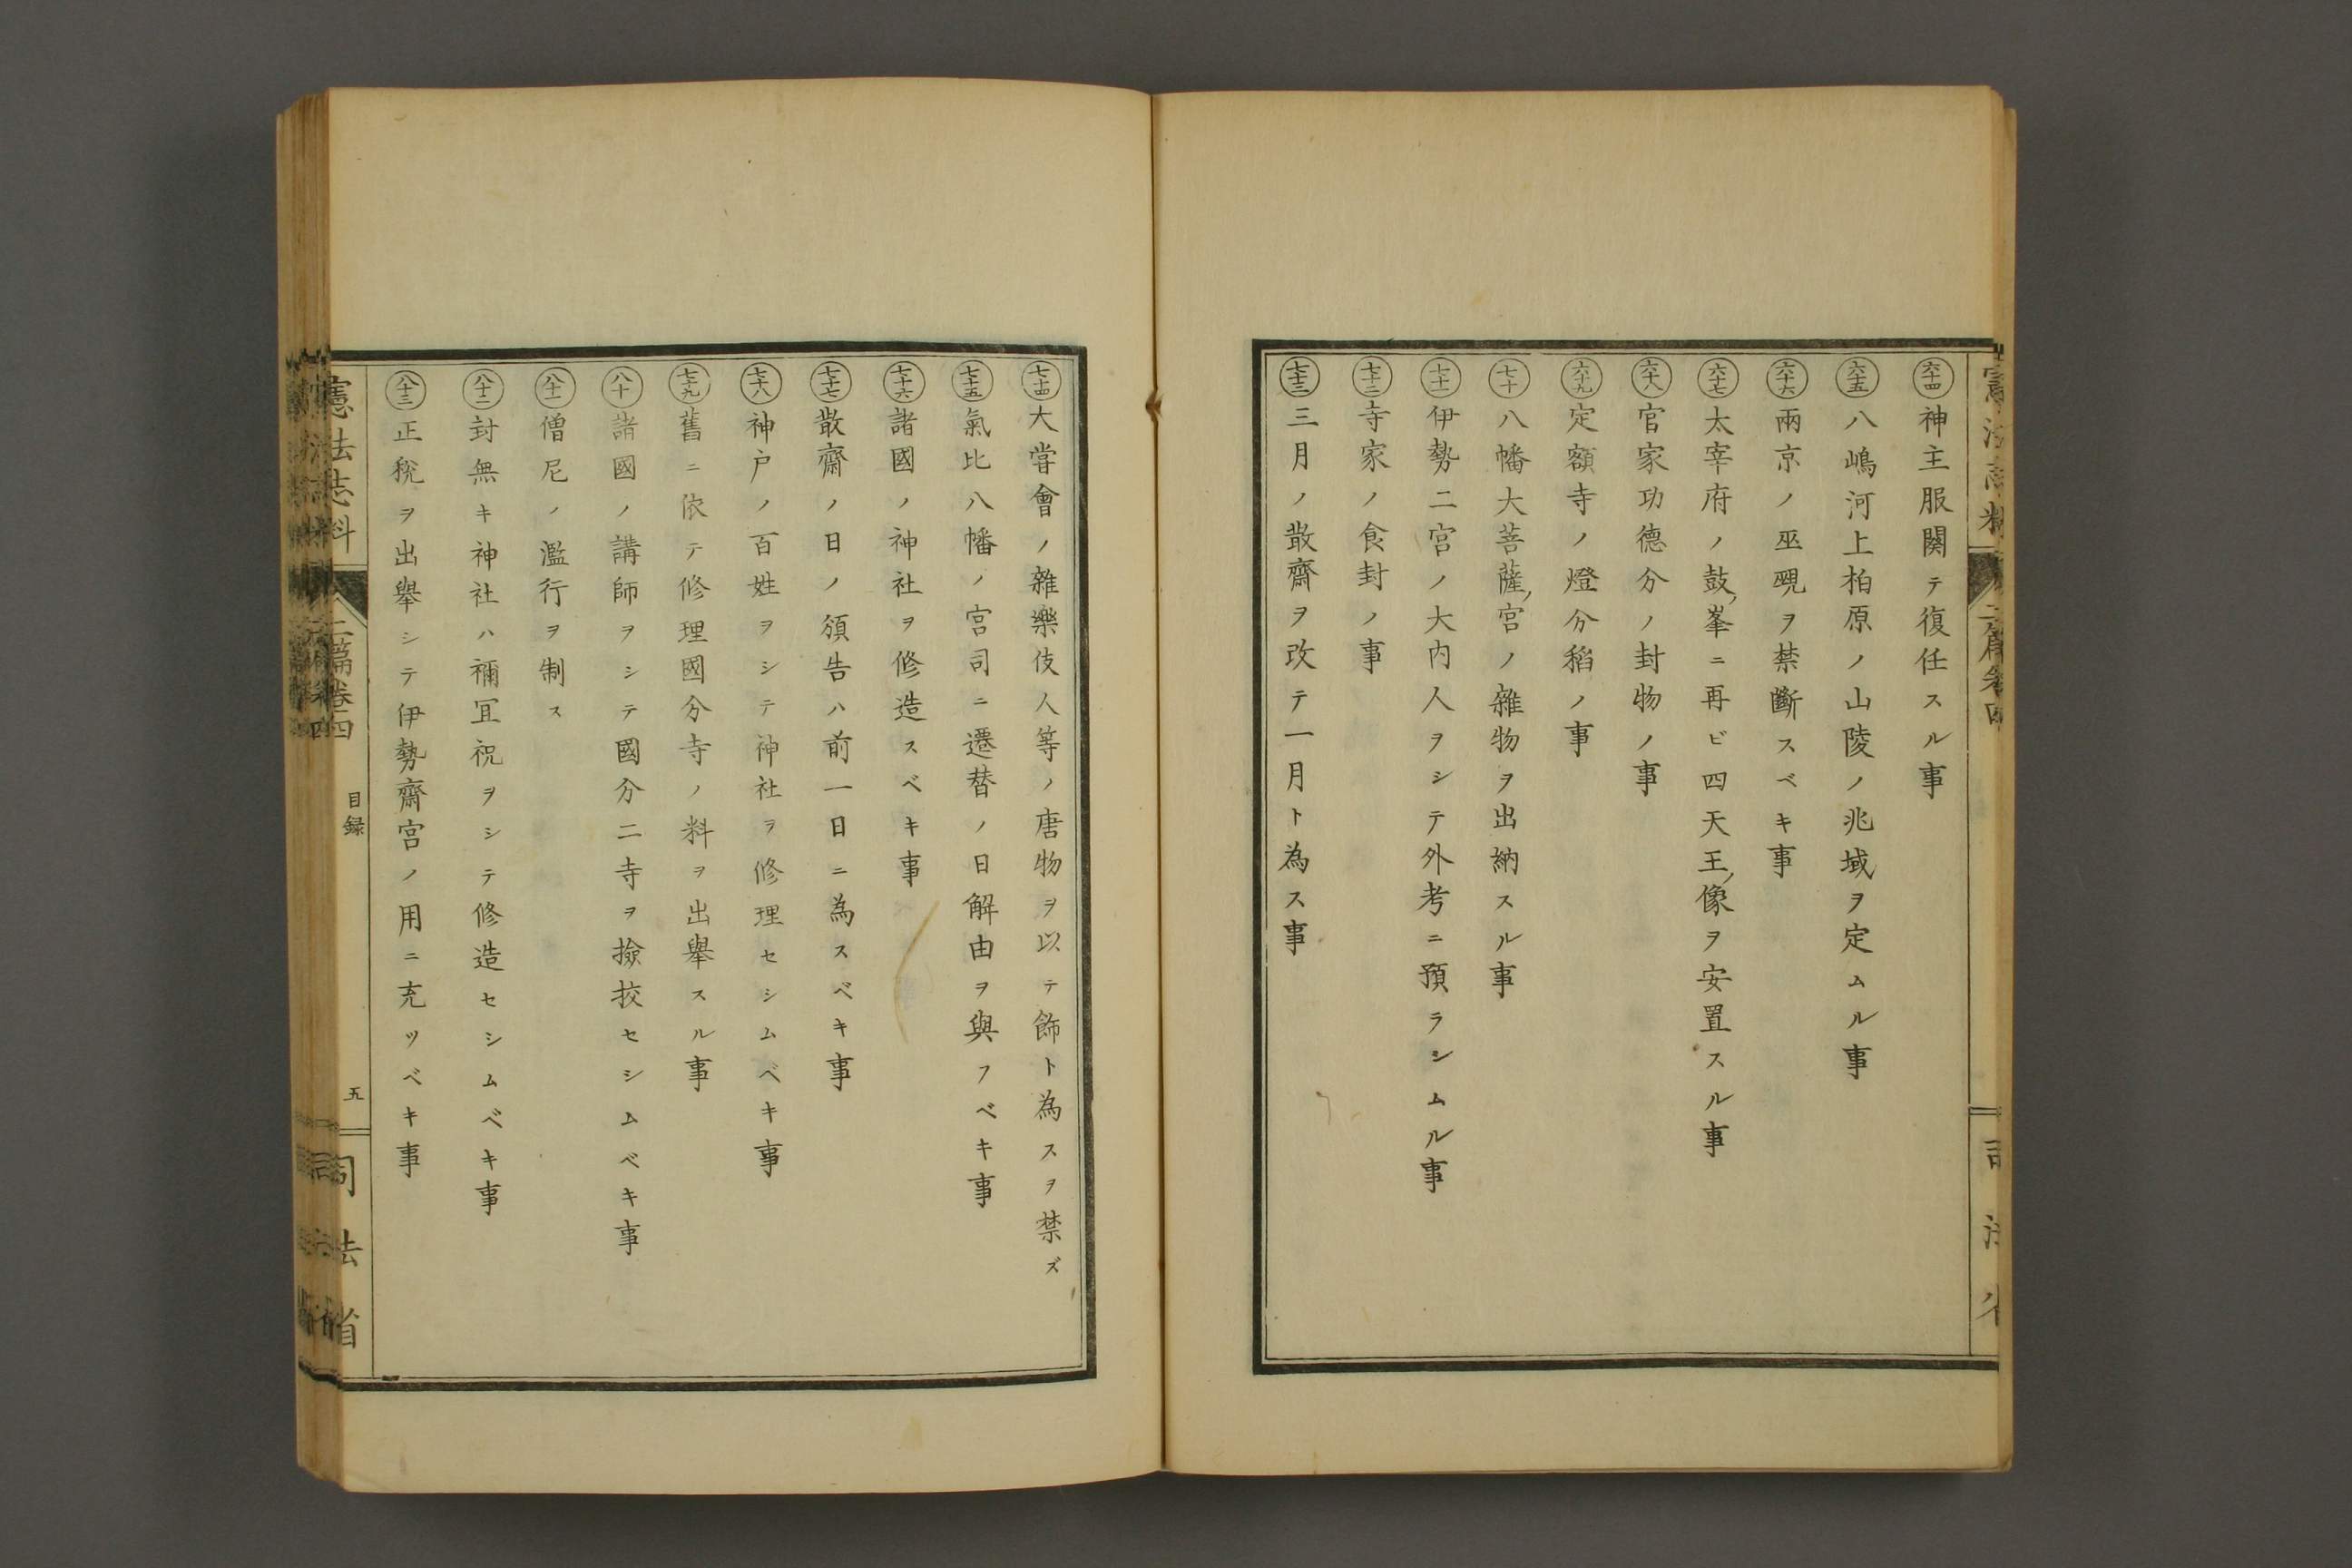 六十四 神主服闋テ復任スル事
六十五 八嶋河上柏原ノ山陵ノ兆域ヲ定ムル事
六十六 兩京ノ巫覡ヲ禁斷スベキ事
六十七 太宰府ノ鼓ノ峯ニ再ビ四天王ノ像ヲ安置スル事
六十八 官家功德分ノ封物ノ事
六十九 定額寺ノ燈分稻ノ事
七十 八幡大菩薩ノ宮ノ雜物ヲ出納スル事
七十一 伊勢二宮ノ大內人ヲシテ外考ニ預ラシムル事
七十二 寺家ノ食封ノ事
七十三 三月ノ散齋ヲ改テ一月ト為ス事
七十四 大嘗會ノ雜樂伎人等ノ唐物ヲ以テ飾ト為スヲ禁ズ
七十五 氣比八幡ノ宮司ニ遷替ノ日解由ヲ與フベキ事
七十六 諸國ノ神社ヲ修造スベキ事
七十七 散齋ノ日ノ頒告ハ前一日ニ為スベキ事
七十八 神戶ノ百姓ヲシテ神社ヲ修理セシムベキ事
七十九 舊ニ依テ修理國分寺ノ料ヲ出舉スル事
八十 諸國ノ講師ヲシテ國分二寺ヲ撿挍セシムベキ事
八十一 僧尼ノ濫行ヲ制ス
八十二 封無キ神社ハ禰冝祝ヲシテ修造セシムベキ事
八十三 正稅ヲ出舉シテ伊勢齋宮ノ用ニ充ツベキ事
憲法志料 二篇卷四 目録 五 司法省